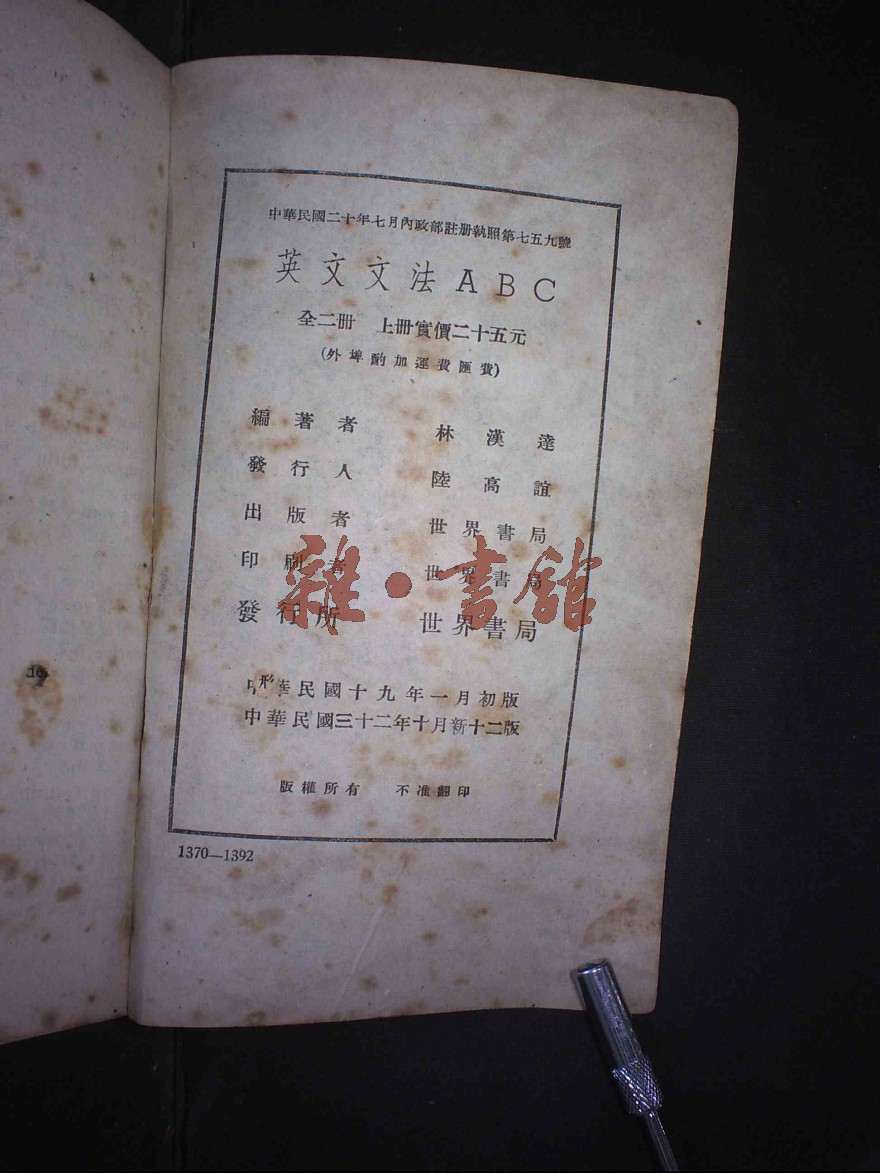 中華民國二十年七月內政部註册執照第七五九號
英文文法ABC
全二冊 上冊實價二十五元
(外埠酌加運費匯費)
編著者 林漢達
發行人 陸高誼
出版者 世界書局
印刷者 世界書局
發行所 世界書局
雜·書館
中華民國十九年一月初版
中華民國三十二年十月新十二版
版權所有 不准翻印
1370—1392